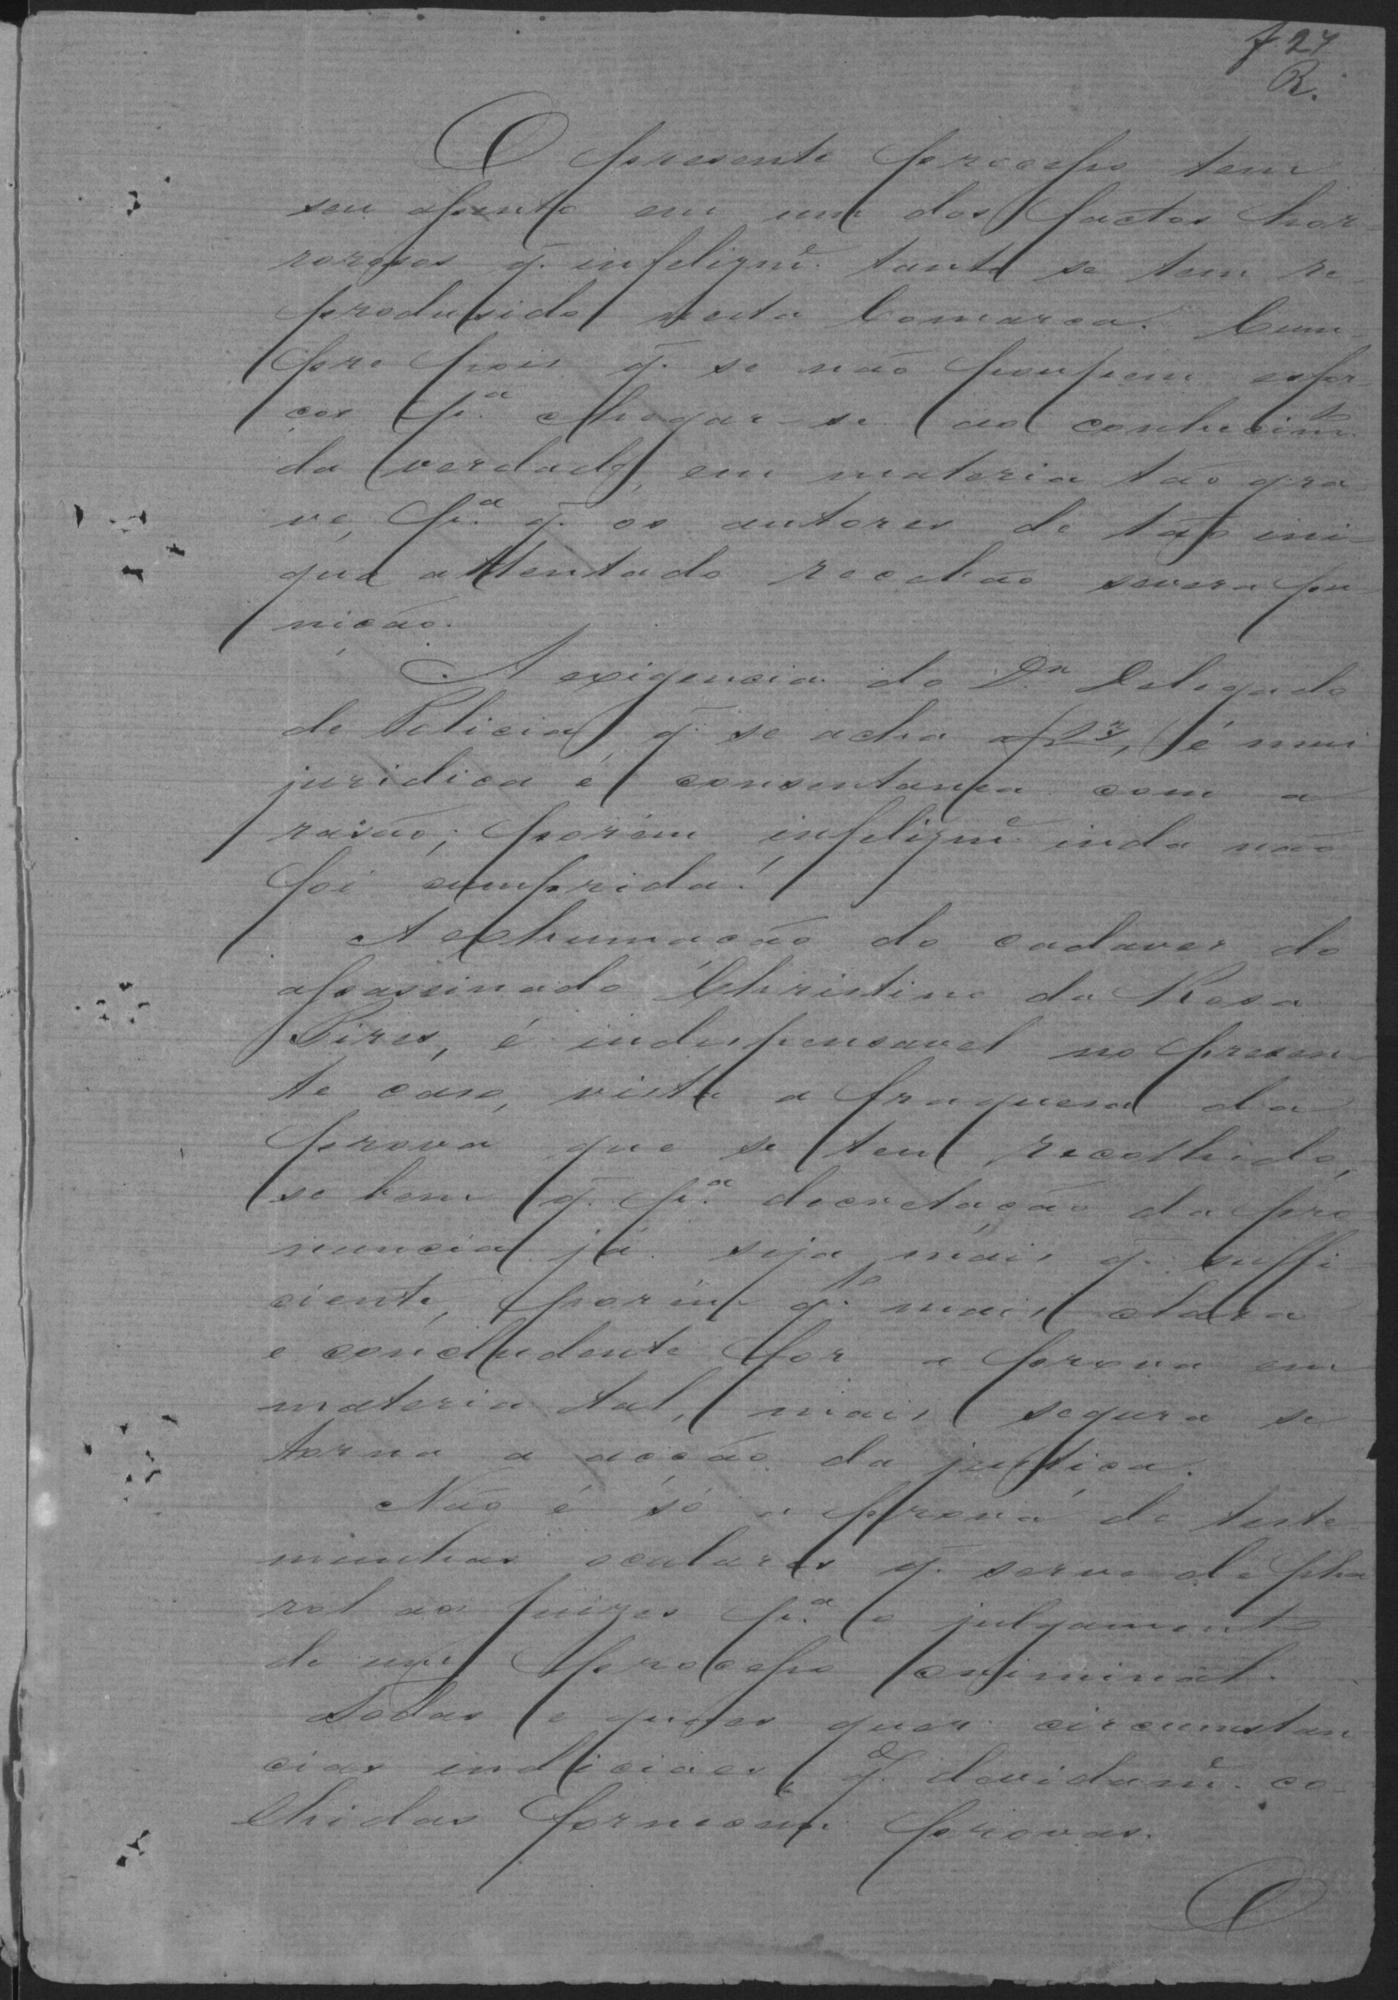 f 24
R.
O presente processo tem
seu assento em um dos factos hor-
rorosos q. infelizm.e tanto se tem re-
produsido nesta Comarca. Cum-
pre pois q. se não poupem esfor-
ços p.a chegar-se ao conhecim.to
da verdade, em materia tão gra-
ve, p.a q. os autores de tão ini-
quo attentado recebão severa pu-
nição.
A exigencia do D.r Delegado
de Policia, q. se acha a f 23, é mui
juridica e consentanea com a
rasão; porém infelizm.e inda não
foi cumprida!
A exhumação do cadaver do
assassinado Christino da Rosa
Pires, é indispensavel no presen-
te caso, visto a fraquesa da
prova que se tem recolhido,
se bem q. p.a decretação da pro-
nuncia já seja mais q. suffi-
ciente, porém q.to mais clara
e concludente for a prova em
materia tal, mais segura se
torna a acção da justiça.
Não é só a prova de teste-
munhas oculares q. serve de pha-
rol aos juizes p.a o julgamento
de um processo criminal.
Todas e quaes quer circumstan-
cias indiciaes, q. devidam.e co-
lhidas fornecem provas.
O